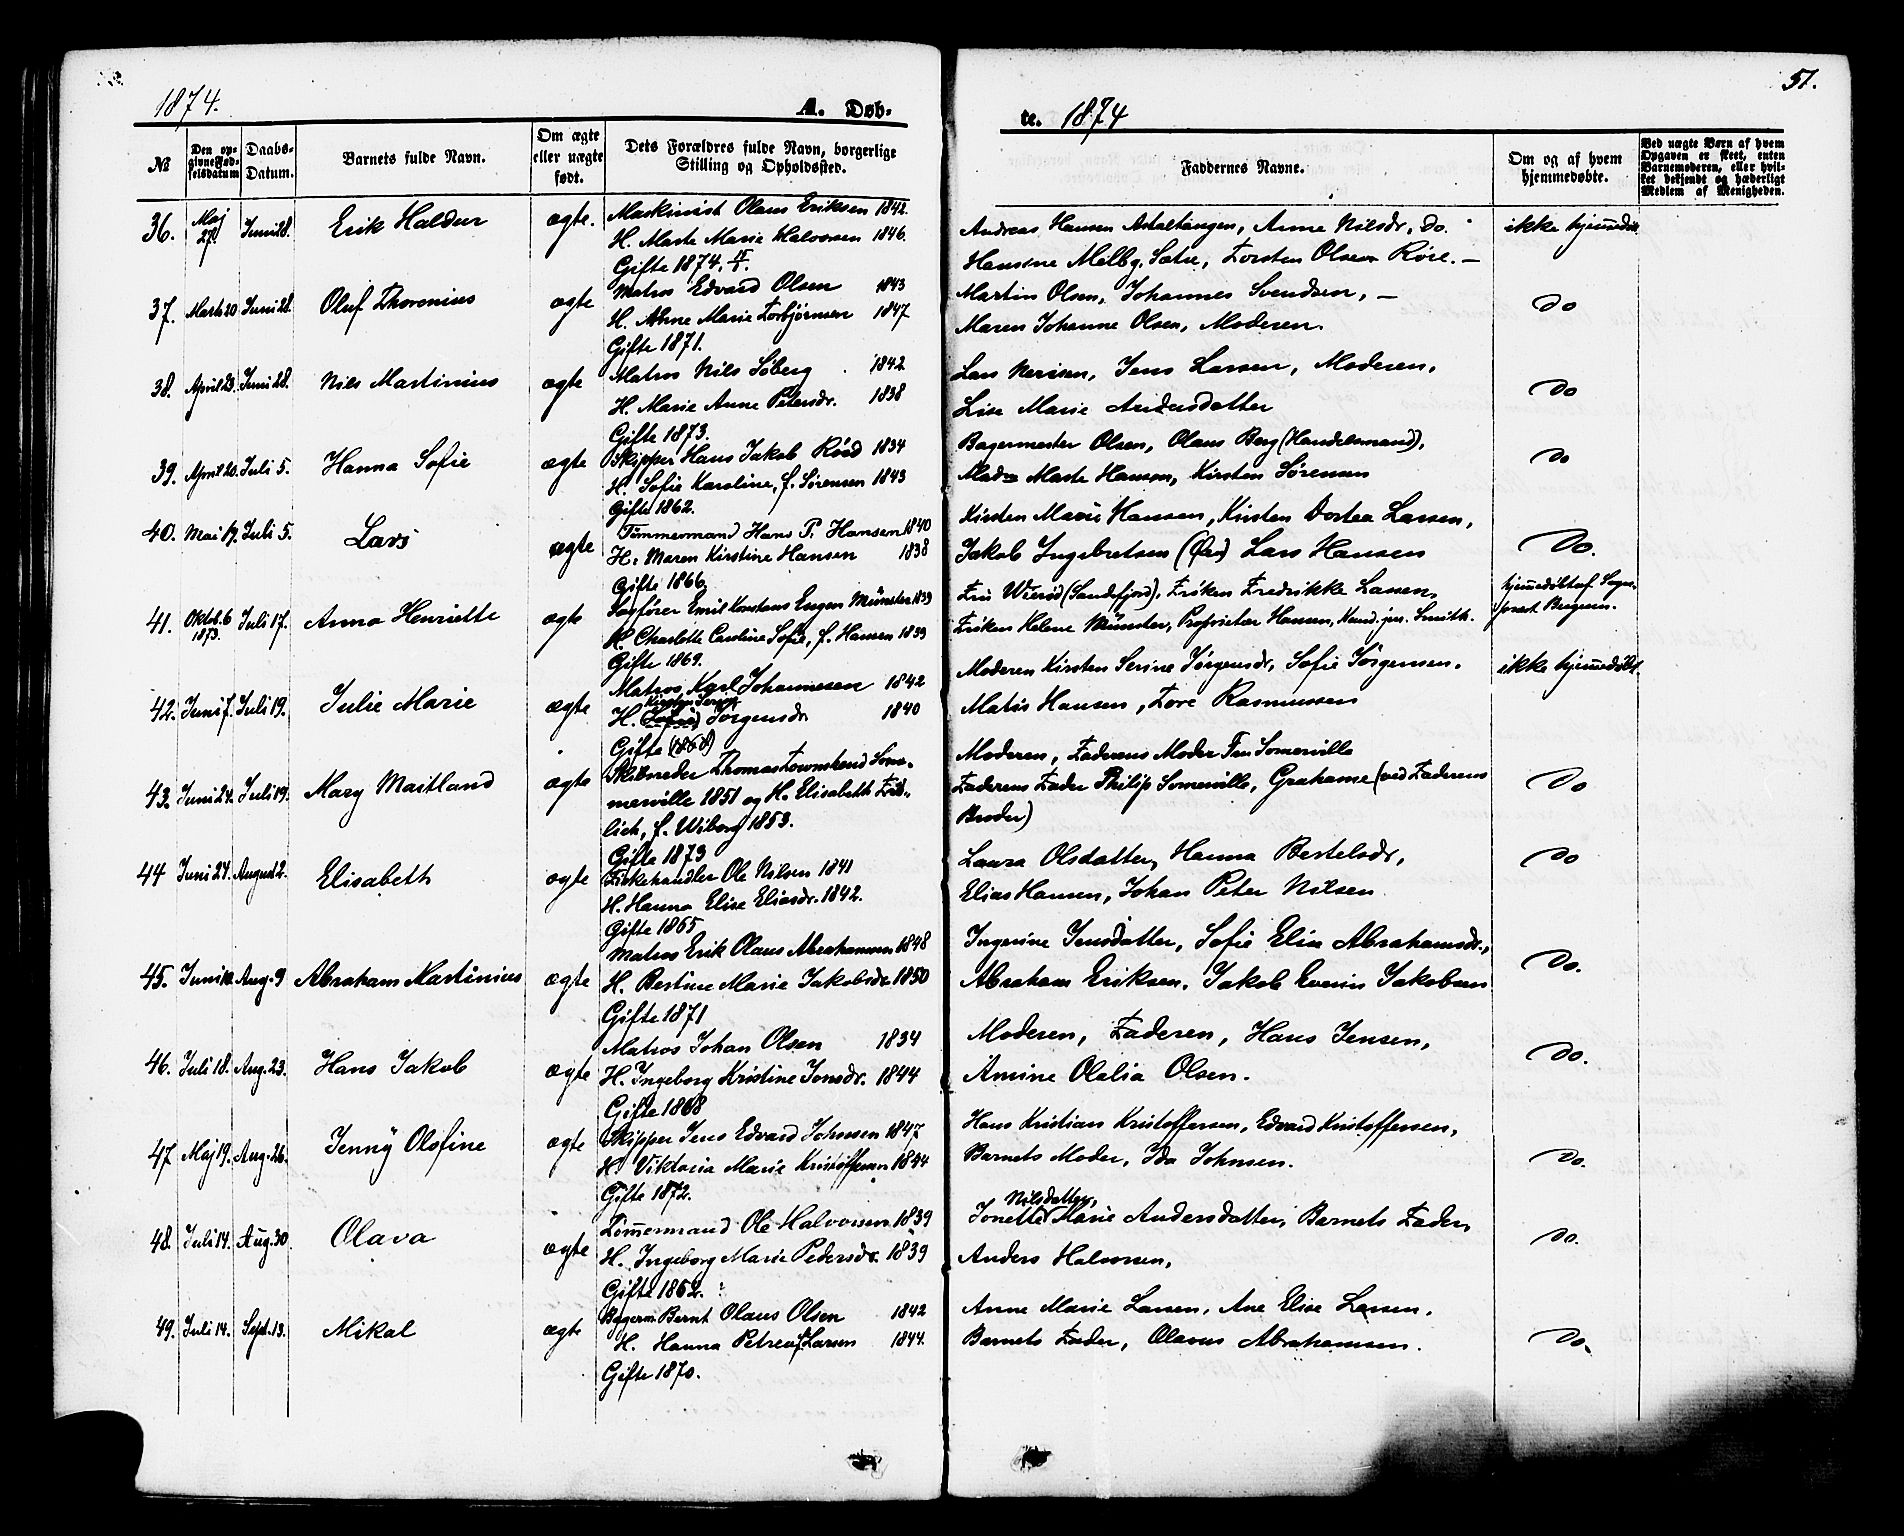 1874.
A. Døb-
№
Den op-
givne Fød-
selsdatum
Daabs-
Datum.
Barnets fulde Navn.
Om ægte
eller uægte
født.
Dets Forældres fulde Navn, borgerlige
Stilling og Opholdssted.
36. Maj 27. Juni 28. Erik Haldur ægte. Maskinist Olaus Eriksen 1842.
H. Marte Marie Halvorsen 1846.
Gifte 1874,
37. Marts 20 Juni 28. Oluf Thorenius ægte Matros Edvard Olsen 1843
H. Anne Marie Torbjørnsen 1847
Gifte 1871.
38. April 23. Juni 28. Nils Martinius ægte Matros Nils Søberg 1842
H. Marie Anne Petersdr. 1838
Gifte 1873.
39. April 20. Juli 5. Hanna Sofie ægte Skipper Hans Jakob Röed 1834
H. Sofie Karoline, f. Sørensen 1843
Gifte 1862.
40. Mai 17. Juli 5. Lars ægte Tømmermand Hans P. Hansen 1840
H. Maren Kirstine Hansen 1838
Gifte 1866.
41. Oktob. 6 1873. Juli 17. Anna Henriette ægte Sagfører Emil Konstans Eugen Münster 1839
H. Charlotte Caroline Sofie, f. Hansen 1839
Gifte 1869.
42. Juni 7. Juli 19. Julie Marie ægte Matros Karl Johannesen 1842
Kirsten Serine
H. (Sofie) Jørgensdr. 1840
Gifte (1868)
43. Juni 24. Juli 19. Mary Maitland ægte Skibsreder Thomas Townshend Som-
merville 1851 og H. Elisabeth Frö-
lich, f. Wiborg 1853.
Gifte 1873
44 Juni 24. August 2. Elisabeth ægte Fiskehandler Ole Nilsen 1841
H. Hanna Elise Eliasdr. 1842.
Gifte 1865
45. Juni 12. Aug. 9 Abraham Martinius ægte Matros Erik Olaus Abrahamsen 1848
H. Bertine Marie Jakobsdr. 1850
Gifte 1871
46. Juli 18. Aug. 23. Hans Jakob ægte Matros Johan Olsen 1834
H. Ingeborg Kristine Jonsdr. 1844
Gifte 1868
47 Maj 19. Aug. 26. Jenny Olofine ægte Skipper Jens Edvard Johnsen 1847
H. Viktoria Marie Kristoffersen 1844
Gifte 1872.
48. Juli 14. Aug. 30. Olava ægte Tømmermand Ole Halvorsen 1839
H. Ingeborg Marie Pedersdr. 1839
Gifte 1862.
49. Juli 14. Sept. 13. Mikal ægte Bagerm. Bernt Olaus Olsen 1842
H. Hanna Petrea f. Larsen 1844.
Gifte 1870.
te. 1874
51.
Faddernes Navne.
Om og af hvem
hjemmedøbte.
Ved uægte Børn af hvem
Opgaven er skeet, enten
Barnemoderen, eller hvil-
ket bekjendt og hæderligt
Medlem af Menigheden.
Andreas Hansen Anne Nilsdr, do. ikke hjemmedøbt
Hansine Melby, Sætre, Torsten Olsen Röre. —
Martin Olsen, Johannes Svendsen, — Do
Maren Johanne Olsen, Moderen.
Lars Jens Larsen, Moderen, Do
Lise Marie Andersdatter
Bagermester Olsen, Olaus Berg (Handelsmand), Do
Madm Marte Hanson, Kirsten Sørensen
Kirsten Marie Hansen, Kirsten Dortea Larsen,
Jakob Ingebretsen Lars Hansen Do.
Fru Wierød (Sandefjord), Frøken Fredrikke Lassen, hjemmedöbt af Sogne-
Frøken Helene Münster, Proprietær Hansen, Kand. jur. Smith. prest
Moderen Kirsten Serine Jørgensdr, Sofie Jørgensen. ikke hjemmedöbt.
Matis Hansen, Tore Rasmussen
Moderen, Faderens Moder Fru Somerville
Faderens Fader Philip Somerville, Grahame (ved Faderens Do
Broder)
Laura Olsdatter, Hanna Bertelsdr, Do
Elias Hansen, Johan Peter Nilsen
Ingerine Jensdatter, Sofie Elise Abrahamsdr., Do.
Abraham Eriksen, Jakob Jakobsen
Moderen, Faderen, Hans Jensen, Do.
Amine Olalia Olsen.
Hans Kristian Kristoffersen, Edvard Kristoffersen,
Barnets Moder, Ida Johnsen. Do.
Nilsdatter,
Jonette Marie Andersdatter, Barnets Fader, Do.
Anders Halvorsen,
Anne Marie Larsen, Ane Elise Larsen,
Barnets Fader, Olavus Abrahamsen. Do.